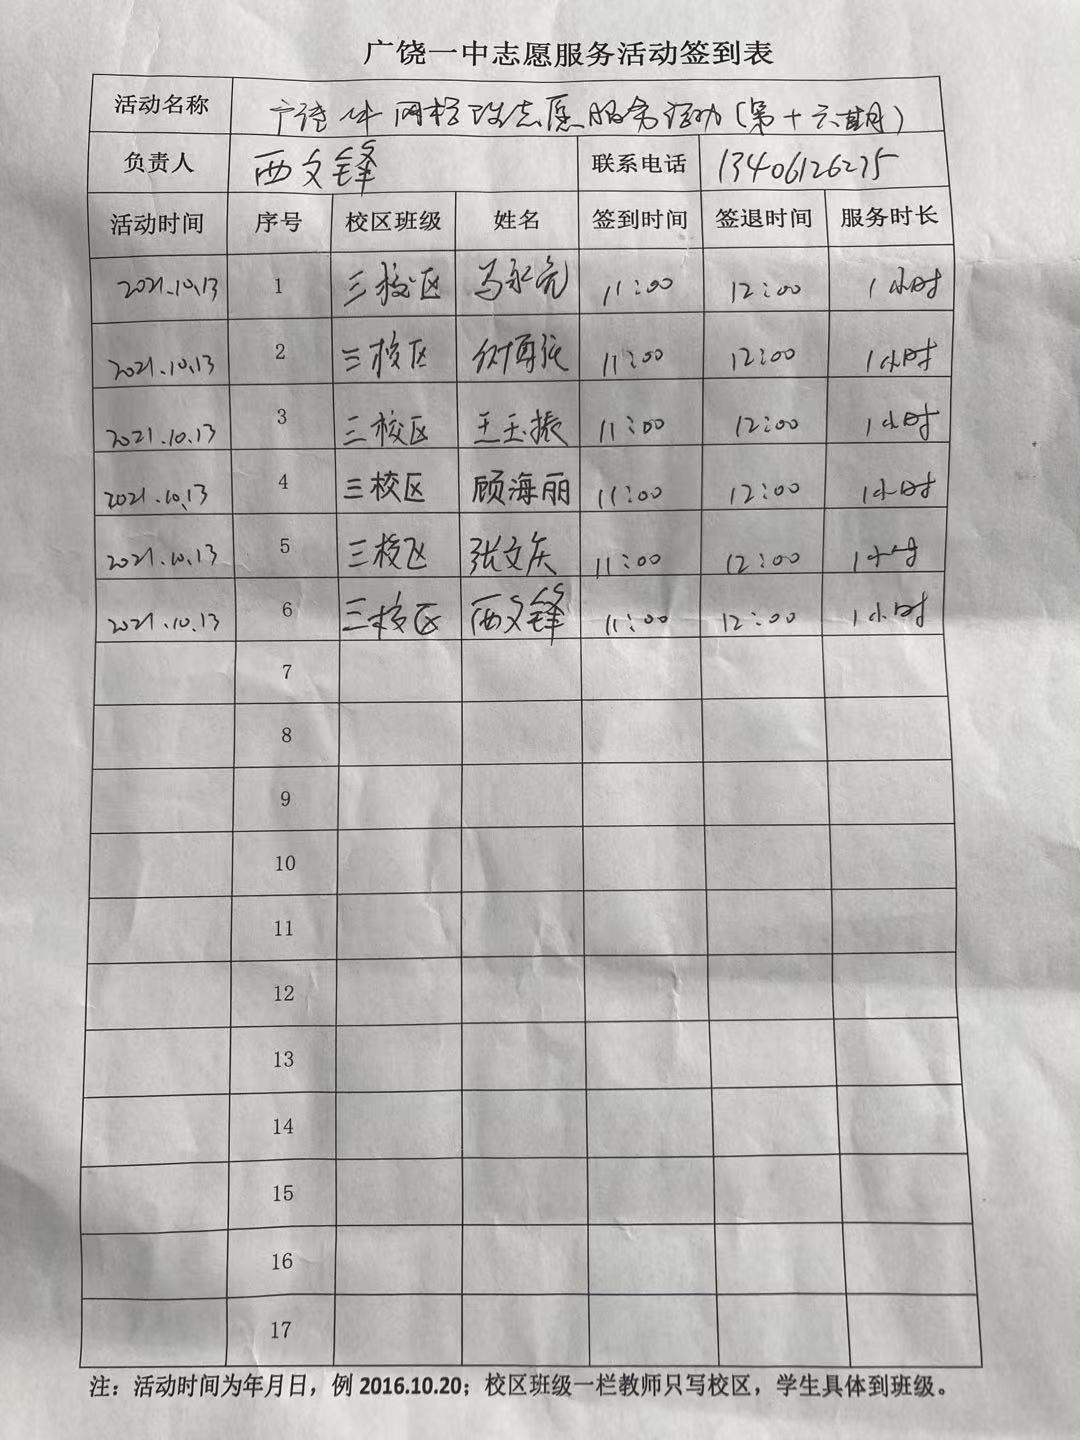 广饶一中志愿服务活动签到表
活动名称 广饶一中网格班志愿服务活动(第十六期)
负责人 西文锋 联系电话 13406126275
活动时间 序号 校区班级 姓名 签到时间 签退时间 服务时长
2021.10.13 1 三校区 马永亮 11:00 12:00 1小时
2021.10.13 2 三校区 11:00 12:00 1小时
2021.10.13 3 三校区 王玉振 11:00 12:00 1小时
2021.10.13 4 三校区 顾海丽 11:00 12:00 1小时
2021.10.13 5 三校区 张文庆 11:00 12:00 1小时
2021.10.13 6 三校区 西文锋 11:00 12:00 1小时
7
8
9
10
11
12
13
14
15
16
17
注：活动时间为年月日，例 2016.10.20；校区班级一栏教师只写校区，学生具体到班级。